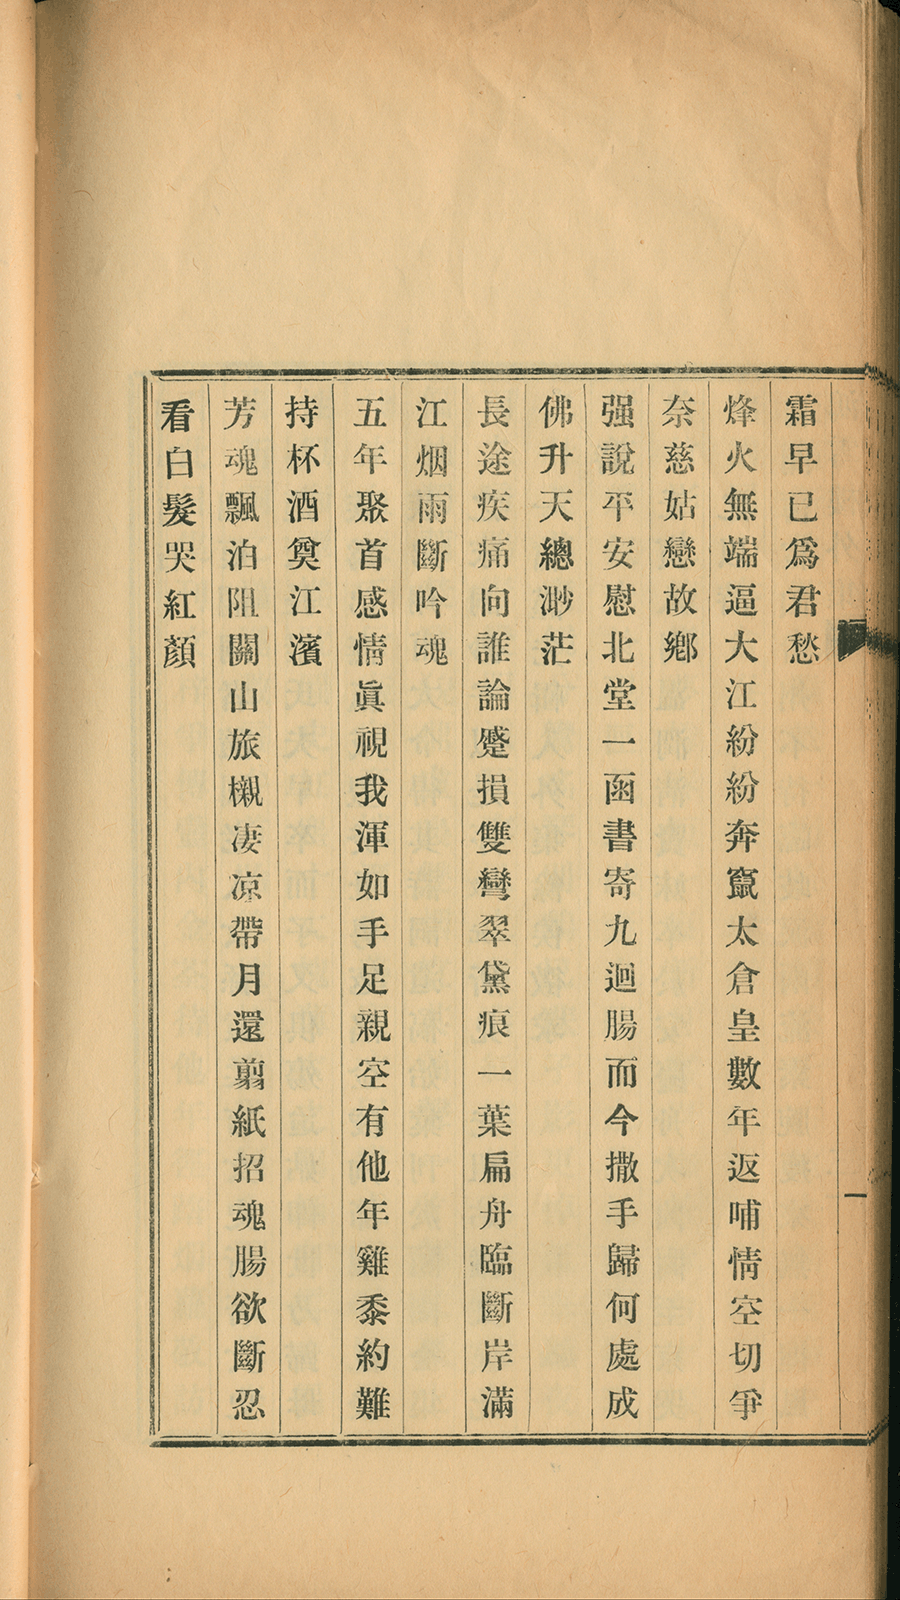 霜早已爲君愁
烽火無端逼大江紛紛奔竄太倉皇數年返哺情空切爭
奈慈姑戀故鄕
强說平安慰北堂一函書寄九迴腸而今撒手歸何處成
佛升天總渺茫
長途疾痛向誰論蹙損雙彎翠黛痕一葉扁舟臨斷岸滿
江烟雨斷吟魂
五年聚首感情眞視我渾如手足親空有他年雞黍約難
持杯酒奠江濱
芳魂飄泊阻關山旅櫬凄凉帶月還剪紙招魂腸欲斷忍
看白髮哭紅顏